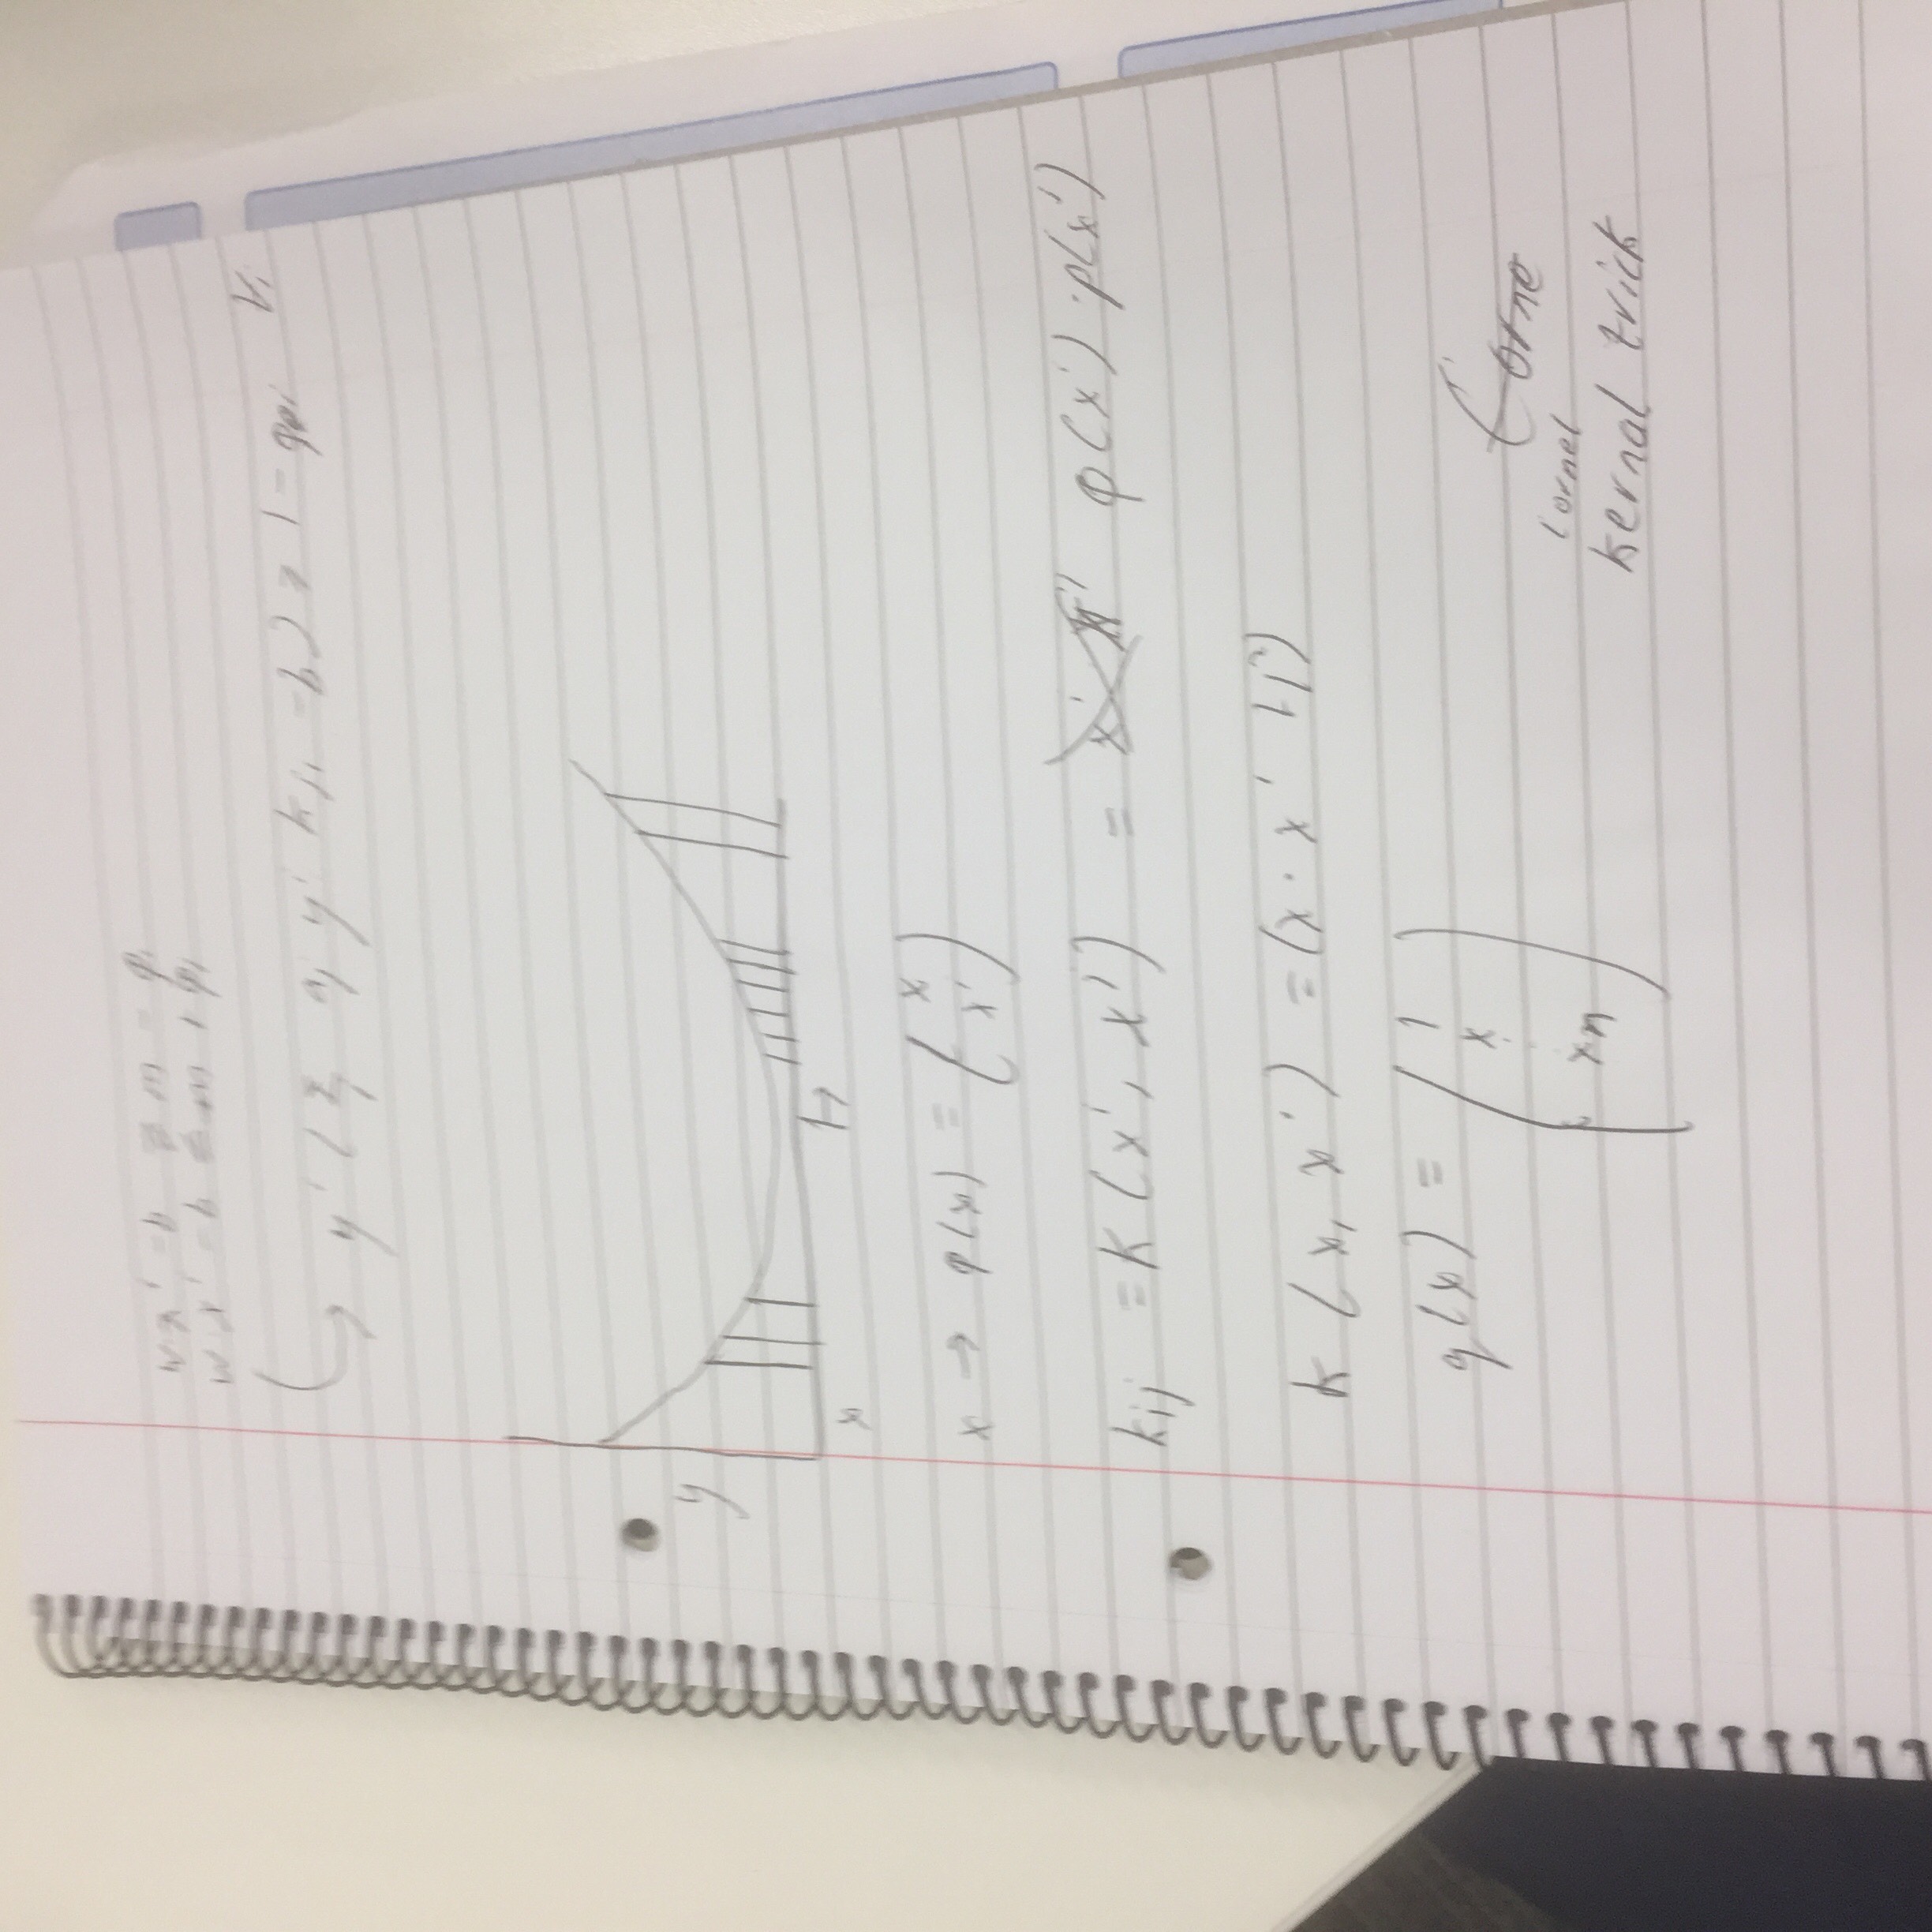 w x' - b ≥ m - φi
w x' - b ≤ m + φi
y' ( Σj aj y' kji - b) ≥ 1 - φi ∀i
y
x
x → φ(x) = ( x x' )
kij = K (x', x') = φ(x') · φ(x')
k (x, x') = (x · x' +1²)
φ(x) = ( 1
x
.
.
xn )
Corne
Cornel
kernal trick